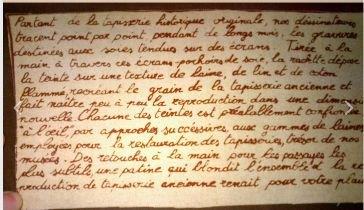 Partant de la tapisserie historique originale, nos dessinateurs
tracent point par point, pendant de longs mois, les gravures
destinées aux soies tendues sur des écrans. Tirée à la
main à travers ces écrans-pochoirs de soie, la raclette dépose
la teinte sur une texture de laine, de lin et de coton
flammé, recréant le grain de la tapisserie ancienne et
fait naître peu à peu la reproduction dans une dimen
nouvelle. Chacune des teintes est préalablement
"à l'oeil", par approches successives, aux gammes de laines
employées pour la restauration des tapisseries, trésor de nos
musées. Des retouches à la main pour les passages les
plus subtils, une patine qui blondit l'ensemble et la
production de tapisserie ancienne renait pour votre plais